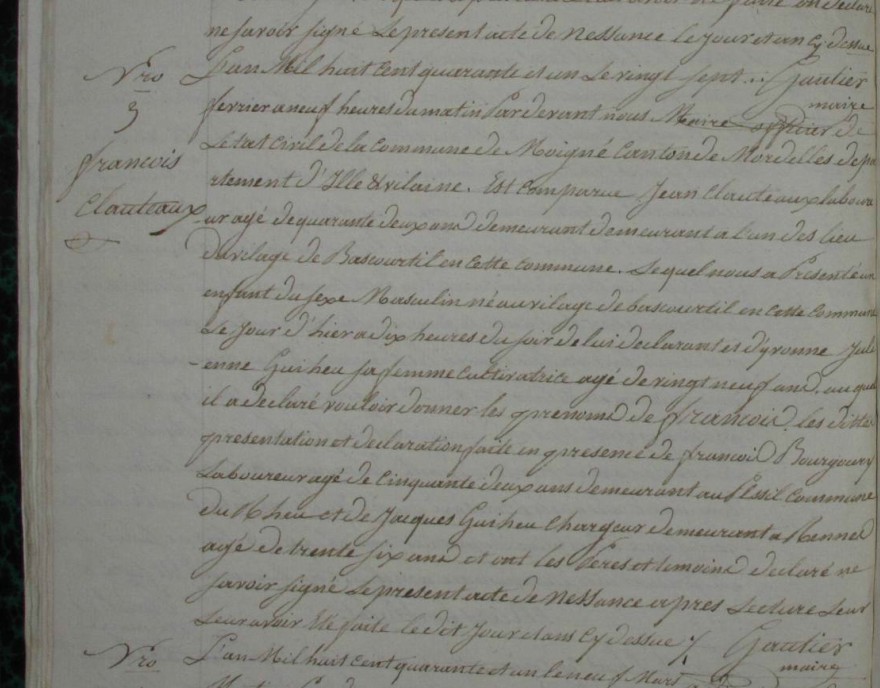 ne savoir signé Le present acte de Nessance Le jour et an Cy dessue
Gautier
maire
Nro
3
francois
Clauteaux
L'an Mil huit Cent quarante et un Le vingt sept
fevrier a neuf heures du matin Par devant nous Maire officier de
Le tat Civil de la Commune de Moigné Canton de Mordelles depa
rtement d'Ille & vilaine. Est Comparue Jean Clauteaux laboure
ur agé de quarante deux ans demeurant demeurant a l'un des lieu
Du vilage de Bascourtil en Cette Commune. Le quel nous a Presenté un
enfant du sexe Masculin né au vilage de bascourtil en Cette Commune
Le Jour d'hier a dix heures du soir de lui declarant et d'yvonne Juli
-enne Guiheu sa femme Cultivatrice agé de vingt neuf ans. au quel
il a declaré vouloir donner les prenoms de francois. les dittes
presentation et declaration faite en presence de francois
Laboureur agé de Cinquante deux ans demeurant au Plessil Commune
Du Rheu et de Jacques Guiheu Chargeur demeurant a Rennes
agé de trente six ans et ont les Peres et temoins declaré ne
savoir signé Le present acte de Nessance apres Lecture Leur
Leur avoir Eté faite le dit Jour et ans Cy dessue
Gautier
maire
Nro
L'an Mil huit Cent quarante et un le neuf Mars